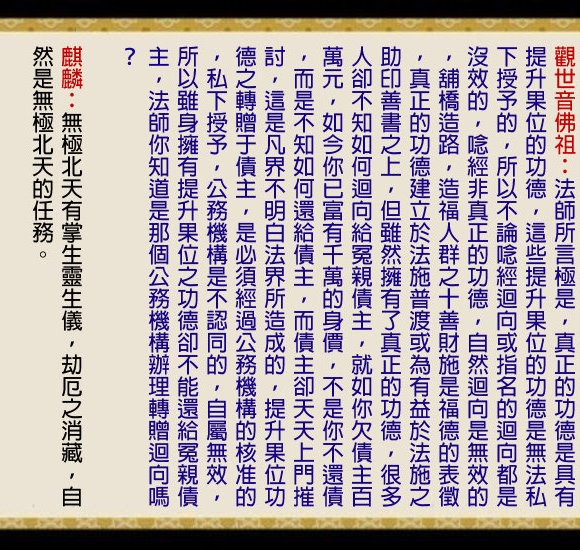 觀世音佛祖：法師所言極是，真正的功德是具有
提升果位的功德，這些提升果位的功德是無法私
下授予的，所以不論唸經迴向或指名的迴向都是
沒效的，唸經非真正的功德，自然迴向是無效的
，舖橋造路，造福人群之十善財施是福德的表徵
，真正的功德建立於法施普渡或為有益於法施之
助印善書之上，但雖然擁有了真正的功德，很多
人卻不知如何迴向給冤親債主，就如你欠債主百
萬元，如今你已富有千萬的身價，不是你不還債
，而是不知如何還給債主，而債主卻天天上門摧
討，這是凡界不明白法界所造成的，提升果位功
德之轉贈于債主，是必須經過公務機構的核准的
，私下授予，公務機構是不認同的，自屬無效，
所以雖身擁有提升果位之功德卻不能還給冤親債
主，法師你知道是那個公務機構辦理轉贈迴向嗎
？
麒麟：無極北天有掌生靈生儀，劫厄之消藏，自
然是無極北天的任務。